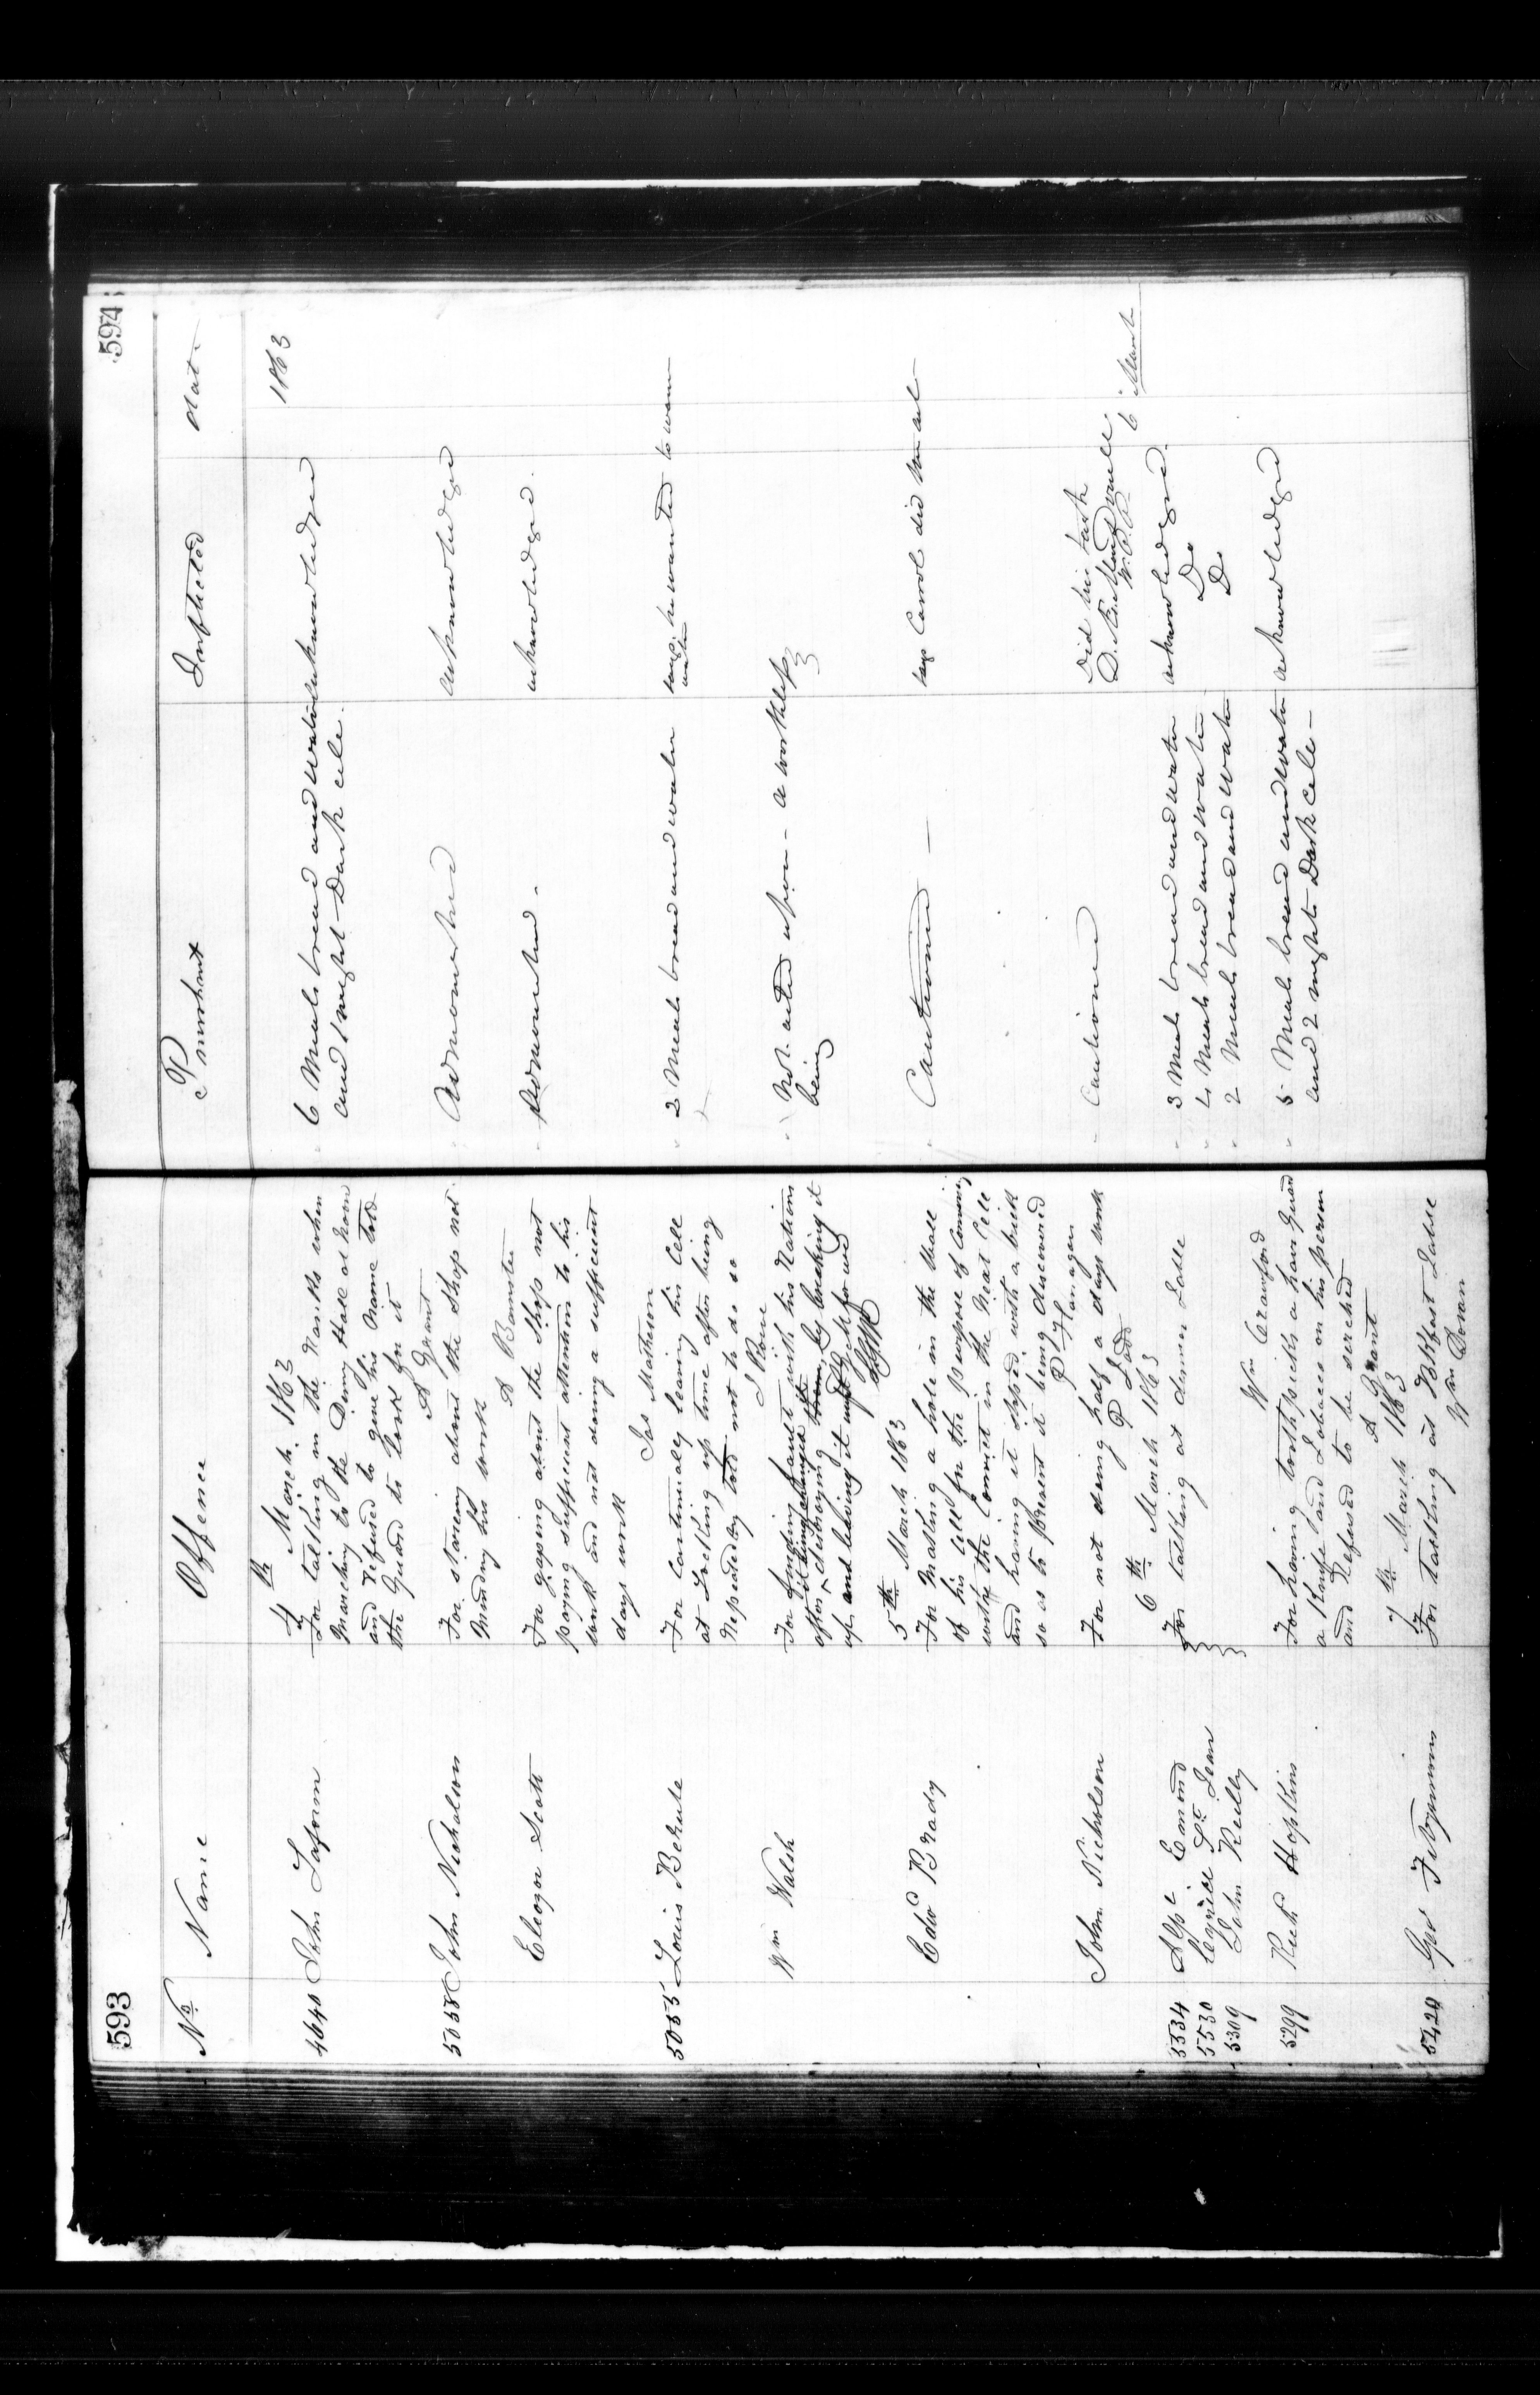 593
No. Name Offence
4th March 1863
4640 John Lafornn For talking in the Ranks when
Marching to the Dining Hall at Noon
and refused to give his Name told
the Guard to look for it
A Grant
5058 John Nicholson For staring about the Shop not
Minding his work
A Bannster
Eleazor Scott For gaping about the Shop not
paying sufficient attention to his
work and not doing a sufficient
days work
Jas Matheson
5055 Louis Berube For Continually leaving his Cell
at Locking up time after being
Repeatedly told not to do so
J Rowe
Wm Walsh For finding fault with his Rations
after it being changed
& destroying by breaking it
up and leaving it
5th March 1863
Edwd Brady For Making a hole in the Wall
of his Cell for the purpose of Coming
with the Convict in the Next Cell
and having it stoped with a brick
so as to prevent it being discovered
P Flanagan
John Nicholson For not doing half a days work
P Ladd
6th March 1863
5534 Alpe Emond For talking at dinner Table
5530 Cyrice St Jean
5309 John Reilly
Wm Crawford
5299 Rich Hopkins For having tooth picks a hair Guard
a Knife and Tobacco on his person
and Refused to be serched
A Grant
7th March 1863
5429 Geo Fitzsimmons For talking at Bkfast Table
Wm Doran
594
Punishment Inflicted Date
1863
6 Meals bread and water acknowledged
and 1 night Dark cell.
Admonished acknowledged
Admonished. acknowledged.
2 Meals bread and water says he wanted to warm
water
Not acted upon - a worthless
being
Cautioned - says Carrol did the act
Cautioned Did his task
6 March
3 Meals bread and water acknowledged.
4 Meals bread and water Do
2 Meals bread and water Do
5 Meals bread and water acknowledged
and 2 nights Dark Cell -